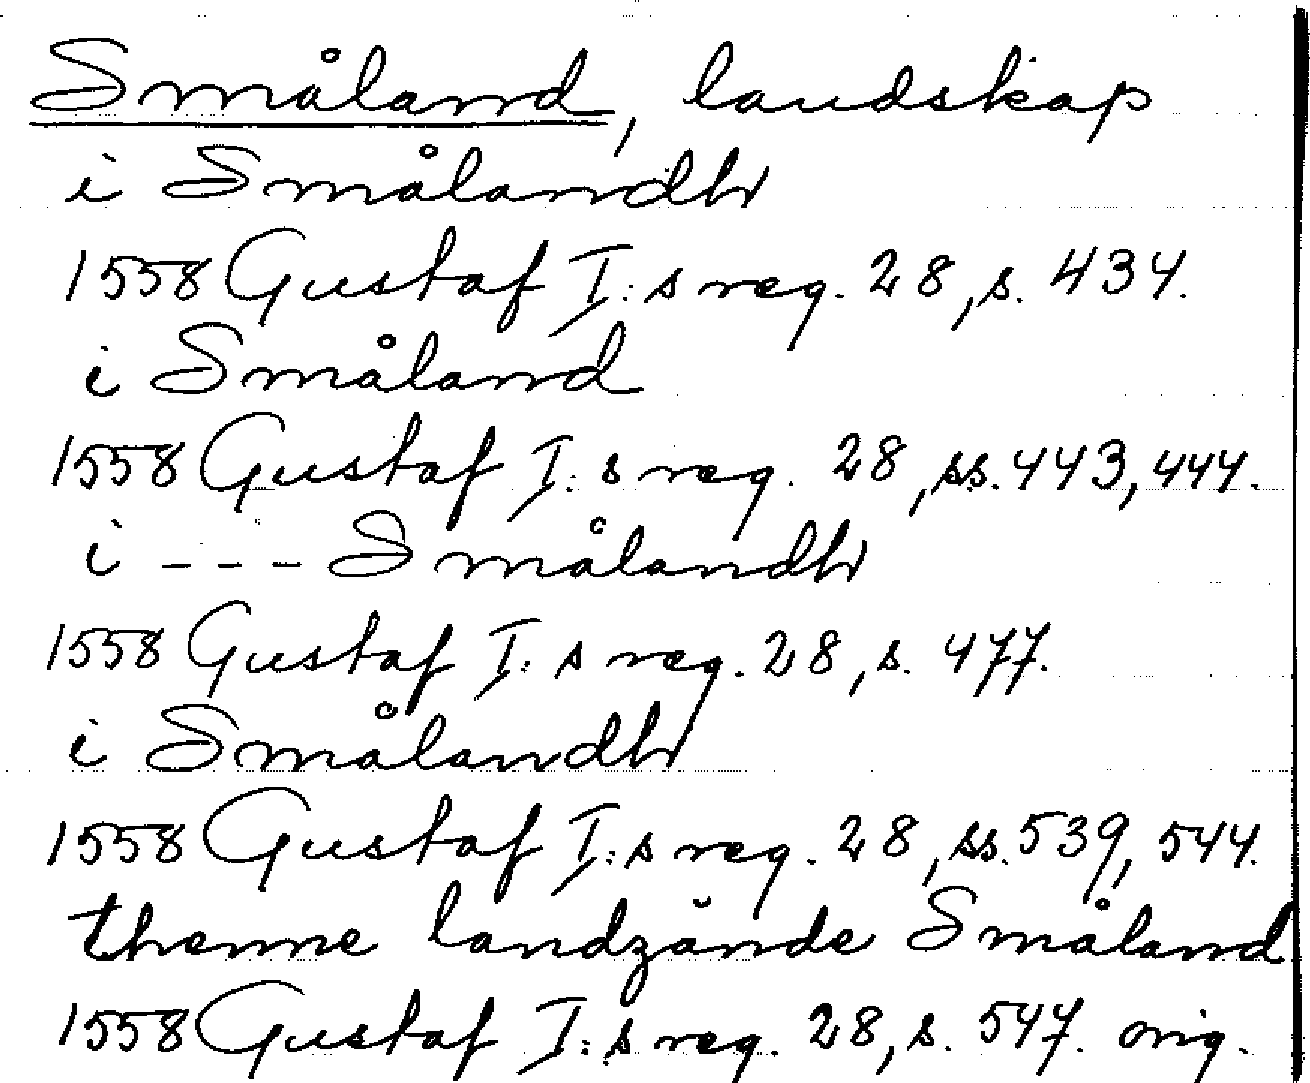 Småland, landskap
i Smålandh
1558 Gustaf I:s reg. 28, s. 434.
i Småland
1558 Gustaf I:s reg. 28, ss. 443, 444.
i - - - Smålandh
1558 Gustaf I:s reg. 28, s. 477.
i Smålandh
1558 Gustaf I:s reg. 28, ss. 539, 544.
thenne landzände Småland
1558 Gustaf I:s reg. 28, s. 547. orig.